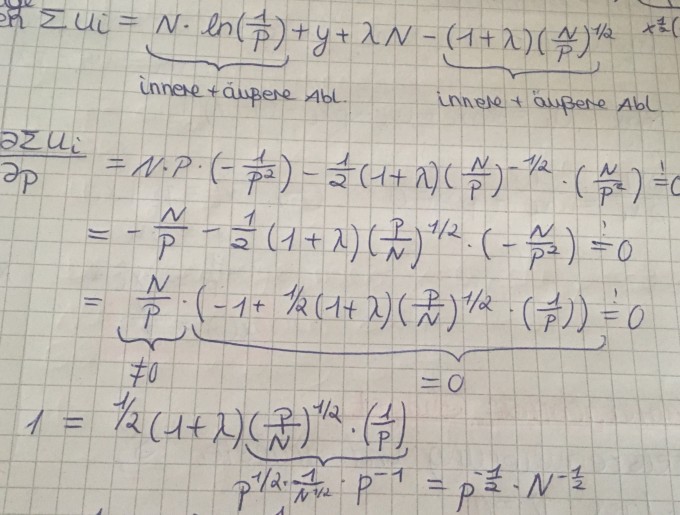 Σ Ui = N · ln(1/P) + y + λN − (1+λ)(N/P)^1/2
innere + äußere Abl. innere + äußere Abl.
∂ΣUi/∂p = N·P·(−1/P²) − 1/2 (1+λ)(N/P)^−1/2 · (N/P²) =! 0
= −N/P − 1/2 (1+λ)(P/N)^1/2 · (−N/P²) =! 0
= N/P · (−1 + 1/2(1+λ)(P/N)^1/2 · (1/P)) =! 0
≠0 = 0
1 = 1/2 (1+λ)(P/N)^1/2 · (1/P)
p^1/2 · 1/N^1/2 · p^−1 = p^−1/2 · N^−1/2